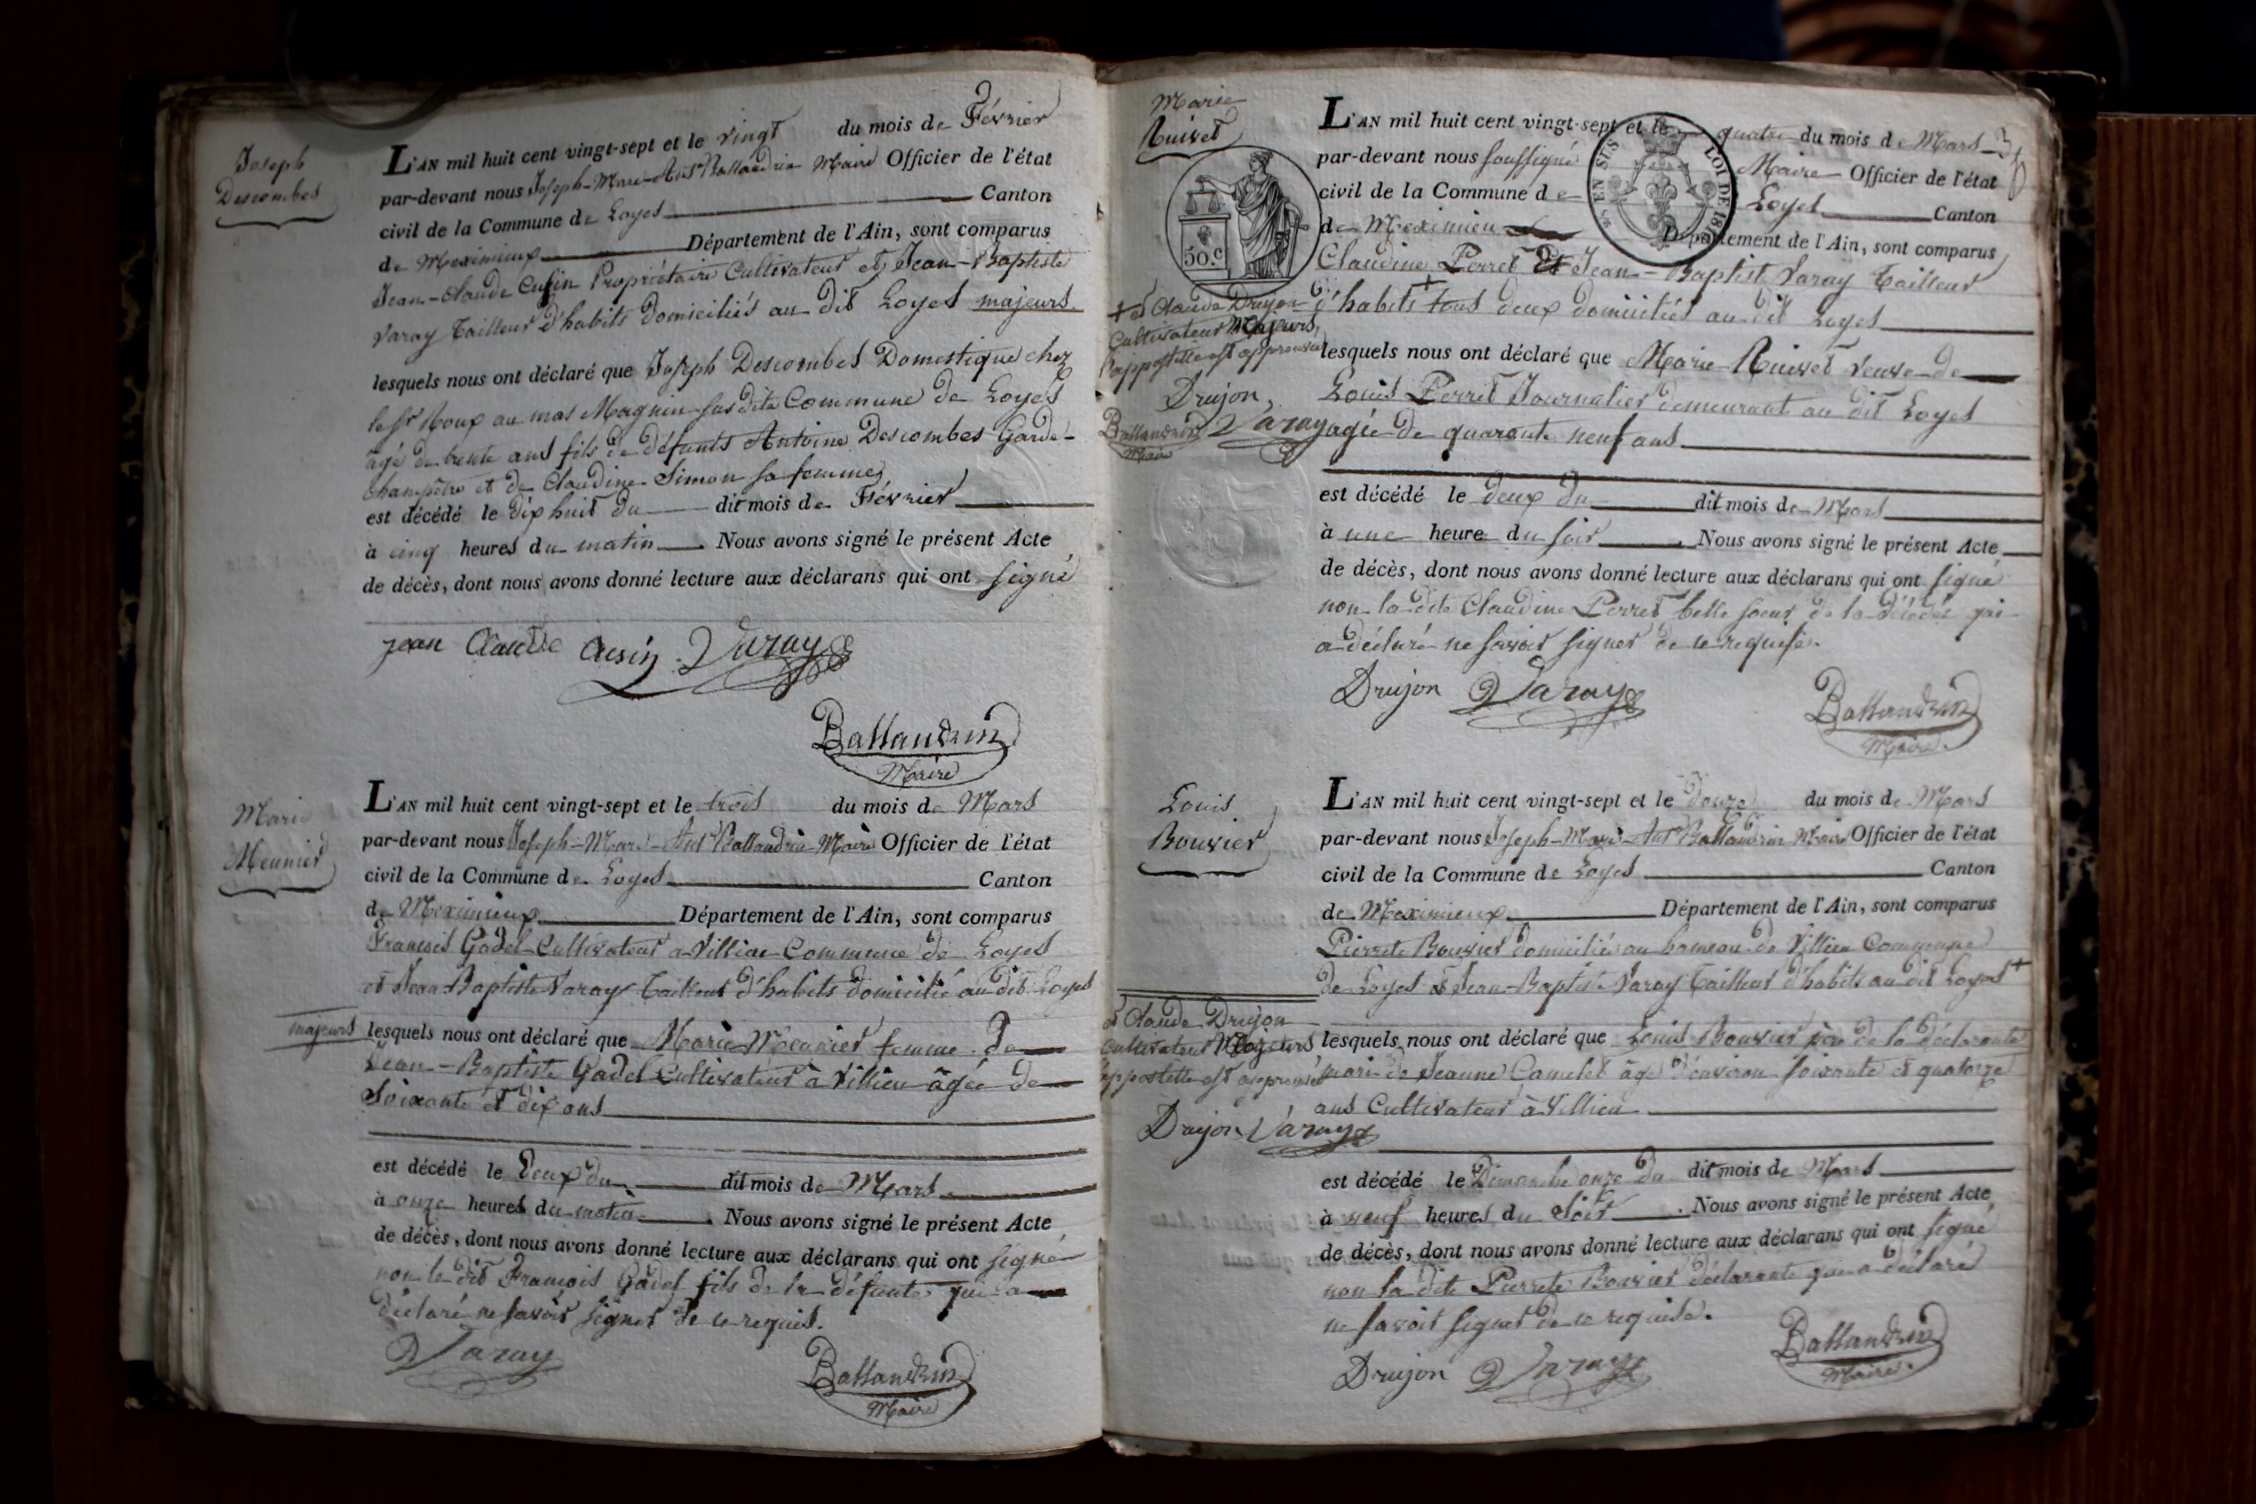 Joseph
Descombes
L'AN mil huit cent vingt-sept et le vingt du mois de Février
par-devant nous Joseph-Marie-Ant Ballandrin Maire Officier de l'état
civil de la Commune de Loyes Canton
de Meximieux Département de l'Ain, sont comparus
Jean-Claude Cusin Propriétaire Cultivateur et Jean-Baptiste
Varay Tailleur d'habits domiciliés au dit Loyes majeurs
lesquels nous ont déclaré que Joseph Descombes Domestique chez
le Sr Roux au mas Magnin susdite Commune de Loyes
âgé de trente ans fils de défunts Antoine Descombes Garde-
champêtre et de Claudine Simon sa femme
est décédé le dix huit du dit mois de Février
à cinq heures du matin. Nous avons signé le présent Acte
de décès, dont nous avons donné lecture aux déclarans qui ont signé
jean Claude Cusin Varay
Ballandrin
Maire
Marie
Meunier
L'AN mil huit cent vingt-sept et le trois du mois de Mars
par-devant nous Joseph-Marie-Ant Ballandrin Maire Officier de l'état
civil de la Commune de Loyes Canton
de Meximieux Département de l'Ain, sont comparus
François Gadel Cultivateur a Villieu Commune de Loyes
et Jean Baptiste Varay Tailleur d'habits domicilié au dit Loyes
majeurs lesquels nous ont déclaré que Marie Meunier femme de
Jean-Baptiste Gadel Cultivateur à Villieu âgée de
Soixante et dix ans
est décédé le Deux du dit mois de Mars
à onze heures du matin. Nous avons signé le présent Acte
de décès, dont nous avons donné lecture aux déclarans qui ont signé
non le dit François Gadel fils de la défunte qui a
déclaré ne savoir signer de ce requis.
Varay
Ballandrin
Maire
Marie
Ruivet
50.C
EN SUS
LOI DE 181
L'AN mil huit cent vingt-sept et le quatre du mois de Mars
par-devant nous soussigné Maire Officier de l'état
civil de la Commune de Loyes Canton
de Meximieux Département de l'Ain, sont comparus
Claudine Perret Et Jean-Baptist Varay Tailleur
d'habits + tous deux domiciliés au dit Loyes
+ et Claude Drujon
Cultivateur Majeurs,
l'appostille est approuvée
Drujon,
Varay
Ballandrin
Maire
lesquels nous ont déclaré que Marie Ruivet veuve de
Louis Perret Journalier demeurant au dit Loyes
agée de quarante neuf ans
est décédé le deux du dit mois de Mars
à une heure du soir. Nous avons signé le présent Acte
de décès, dont nous avons donné lecture aux déclarans qui ont signé
non la dite Claudine Perret belle soeur de la décédée qui
a déclaré ne savoir signer de ce requise.
Drujon Varay
Ballandrin
Maire.
Louis
Bouvier
L'AN mil huit cent vingt-sept et le douze du mois de Mars
par-devant nous Joseph-Marie-Ant Ballandrin Maire Officier de l'état
civil de la Commune de Loyes Canton
de Meximieux Département de l'Ain, sont comparus
Pierrete Bouvier domiciliée au hameau de Villieu Commune
de Loyes et Jean-Baptiste Varay Tailleur d'habits au dit Loyes +
et Claude Drujon
Cultivateur Majeurs
appostelle est approuvée
Drujon Varay
lesquels nous ont déclaré que Louis Bouvier père de la déclarante
mari de Jeanne Camelet âgé d'environ soixante et quatorze
ans Cultivateur à Villieu
est décédé le Dimanche onze du dit mois de Mars
à neuf heures du Soir. Nous avons signé le présent Acte
de décès, dont nous avons donné lecture aux déclarans qui ont signé
non la dite Pierrete Bouvier déclarante qui a déclaré
ne savoir signer de ce requise.
Drujon Varay
Ballandrin
Maire.